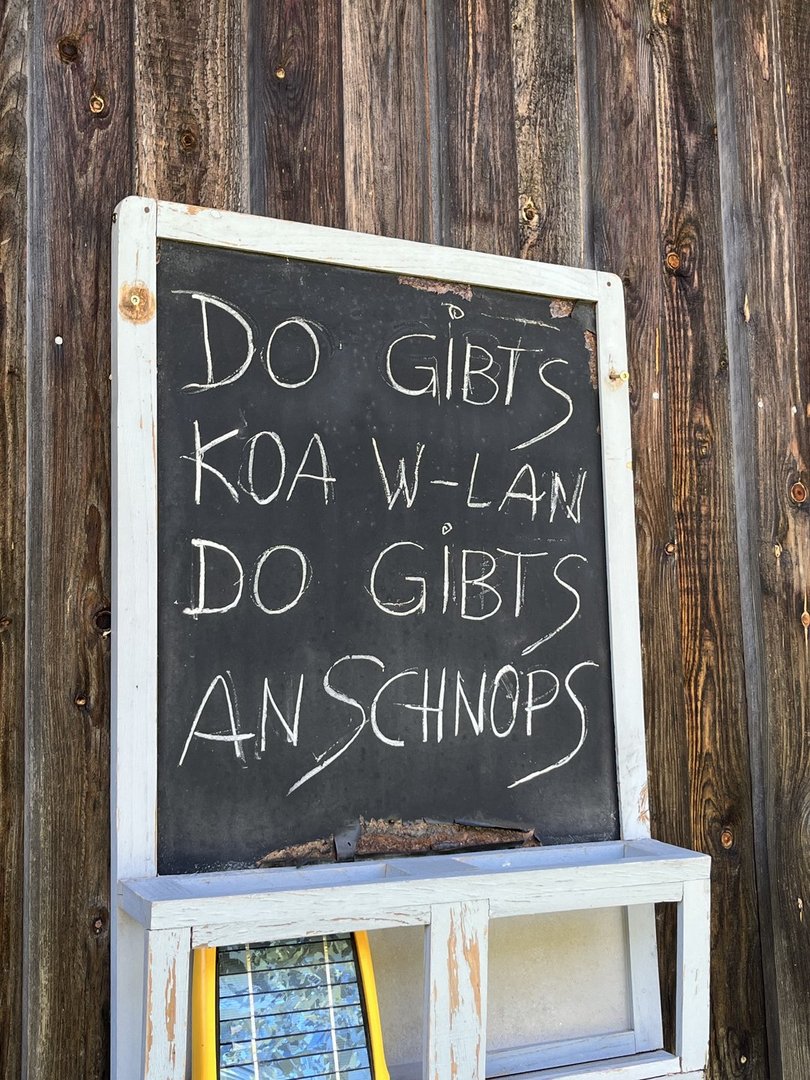 DO GiBTS
KOA W-LAN
DO GiBTS
AN SCHNOPS